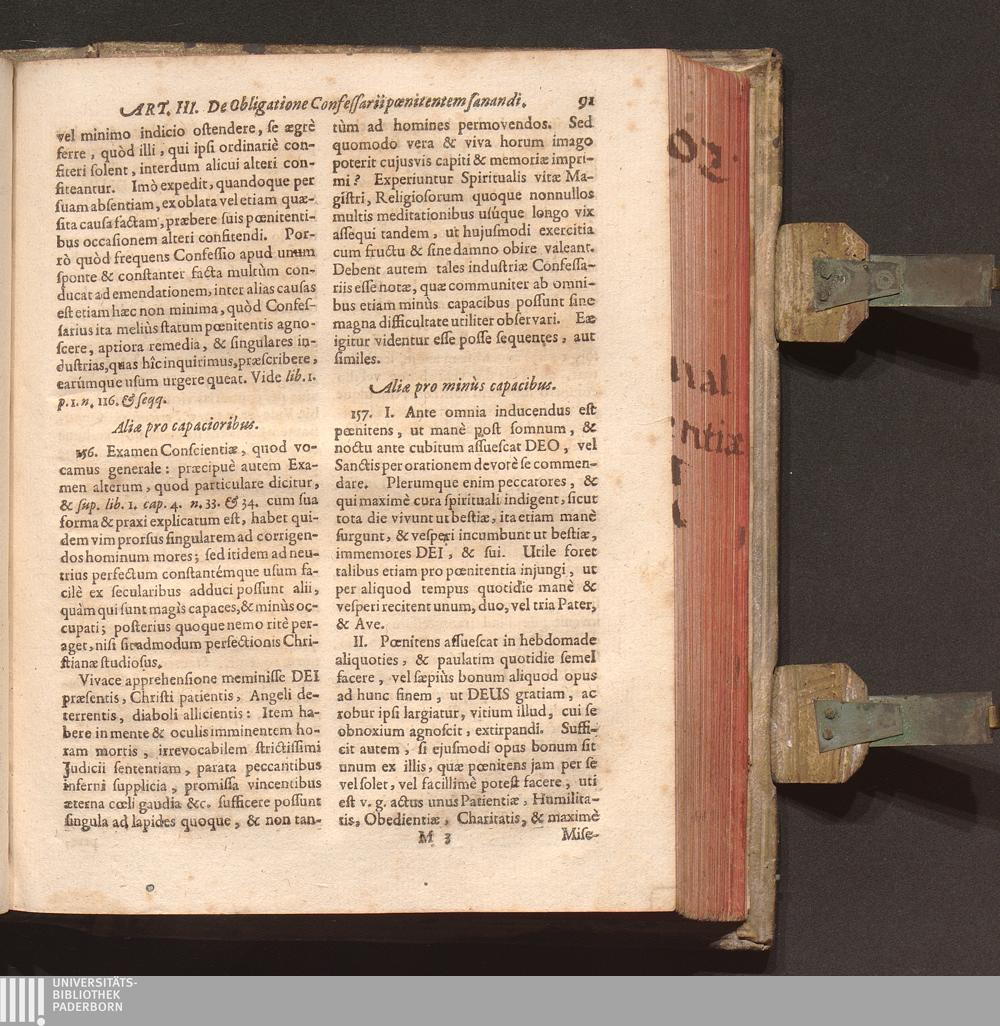 ART. III. De Obligatione Confeſſarii pœnitentem ſanandi. 91
vel minimo indicio oſtendere, ſe ægrè
ferre, quòd illi, qui ipſi ordinariè con-
fiteri ſolent, interdum alicui alteri con-
fiteantur. Imò expedit, quandoque per
ſuam abſentiam, ex oblata vel etiam quæ-
ſita cauſa factam, præbere ſuis pœnitenti-
bus occaſionem alteri confitendi. Por-
rò quòd frequens Confeſſio apud unum
ſponte & conſtanter facta multùm con-
ducat ad emendationem, inter alias cauſas
eſt etiam hæc non minima, quòd Confeſ-
ſarius ita meliùs ſtatum pœnitentis agno-
ſcere, aptiora remedia, & ſingulares in-
duſtrias, quas hîc inquirimus, præſcribere,
earúmque uſum urgere queat. Vide lib. 1.
p. 1. n. 116. & ſeqq.
Aliæ pro capacioribus.
156. Examen Conſcientiæ, quod vo-
camus generale: præcipuè autem Exa-
men alterum, quod particulare dicitur,
& ſup. lib. 1. cap. 4. n. 33. & 34. cum ſua
forma & praxi explicatum eſt, habet qui-
dem vim prorſus ſingularem ad corrigen-
dos hominum mores; ſed itidem ad neu-
trius perfectum conſtantémque uſum fa-
cilè ex ſecularibus adduci poſſunt alii,
quàm qui ſunt magis capaces, & minùs oc-
cupati; poſterius quoque nemo ritè per-
aget, niſi ſit admodum perfectionis Chri-
ſtianæ ſtudioſus.
Vivace apprehenſione meminiſſe DEI
præſentis, Chriſti patientis, Angeli de-
terrentis, diaboli allicientis: Item ha-
bere in mente & oculis imminentem ho-
ram mortis, irrevocabilem ſtrictiſſimi
Judicii ſententiam, parata peccantibus
inferni ſupplicia, promiſſa vincentibus
æterna cœli gaudia &c. ſufficere poſſunt
ſingula ad lapides quoque, & non tan-
tùm ad homines permovendos. Sed
quomodo vera & viva horum imago
poterit cujusvis capiti & memoriæ impri-
mi? Experiuntur Spiritualis vitæ Ma-
giſtri, Religioſorum quoque nonnullos
multis meditationibus uſúque longo vix
aſſequi tandem, ut hujuſmodi exercitia
cum fructu & ſine damno obire valeant.
Debent autem tales induſtriæ Confeſſa-
riis eſſe notæ, quæ communiter ab omni-
bus etiam minùs capacibus poſſunt ſine
magna difficultate utiliter obſervari. Eæ
igitur videntur eſſe poſſe ſequentes, aut
ſimiles.
Aliæ pro minùs capacibus.
157. I. Ante omnia inducendus eſt
pœnitens, ut manè poſt ſomnum, &
noctu ante cubitum aſſueſcat DEO, vel
Sanctis per orationem devotè ſe commen-
dare. Plerumque enim peccatores, &
qui maximè cura ſpirituali indigent, ſicut
tota die vivunt ut beſtiæ, ita etiam manè
ſurgunt, & veſperi incumbunt ut beſtiæ,
immemores DEI, & ſui. Utile foret
talibus etiam pro pœnitentia injungi, ut
per aliquod tempus quotidie manè &
veſperi recitent unum, duo, vel tria Pater,
& Ave.
II. Pœnitens aſſueſcat in hebdomade
aliquoties, & paulatim quotidie ſemel
facere, vel ſæpiùs bonum aliquod opus
ad hunc finem, ut DEUS gratiam, ac
robur ipſi largiatur, vitium illud, cui ſe
obnoxium agnoſcit, extirpandi. Suffi-
cit autem, ſi ejuſmodi opus bonum ſit
unum ex illis, quæ pœnitens jam per ſe
vel ſolet, vel facillimè poteſt facere, uti
eſt v. g. actus unus Patientiæ, Humilita-
tis, Obedientiæ, Charitatis, & maximè
M 3 Miſe-
UNIVERSITÄTS-
BIBLIOTHEK
PADERBORN